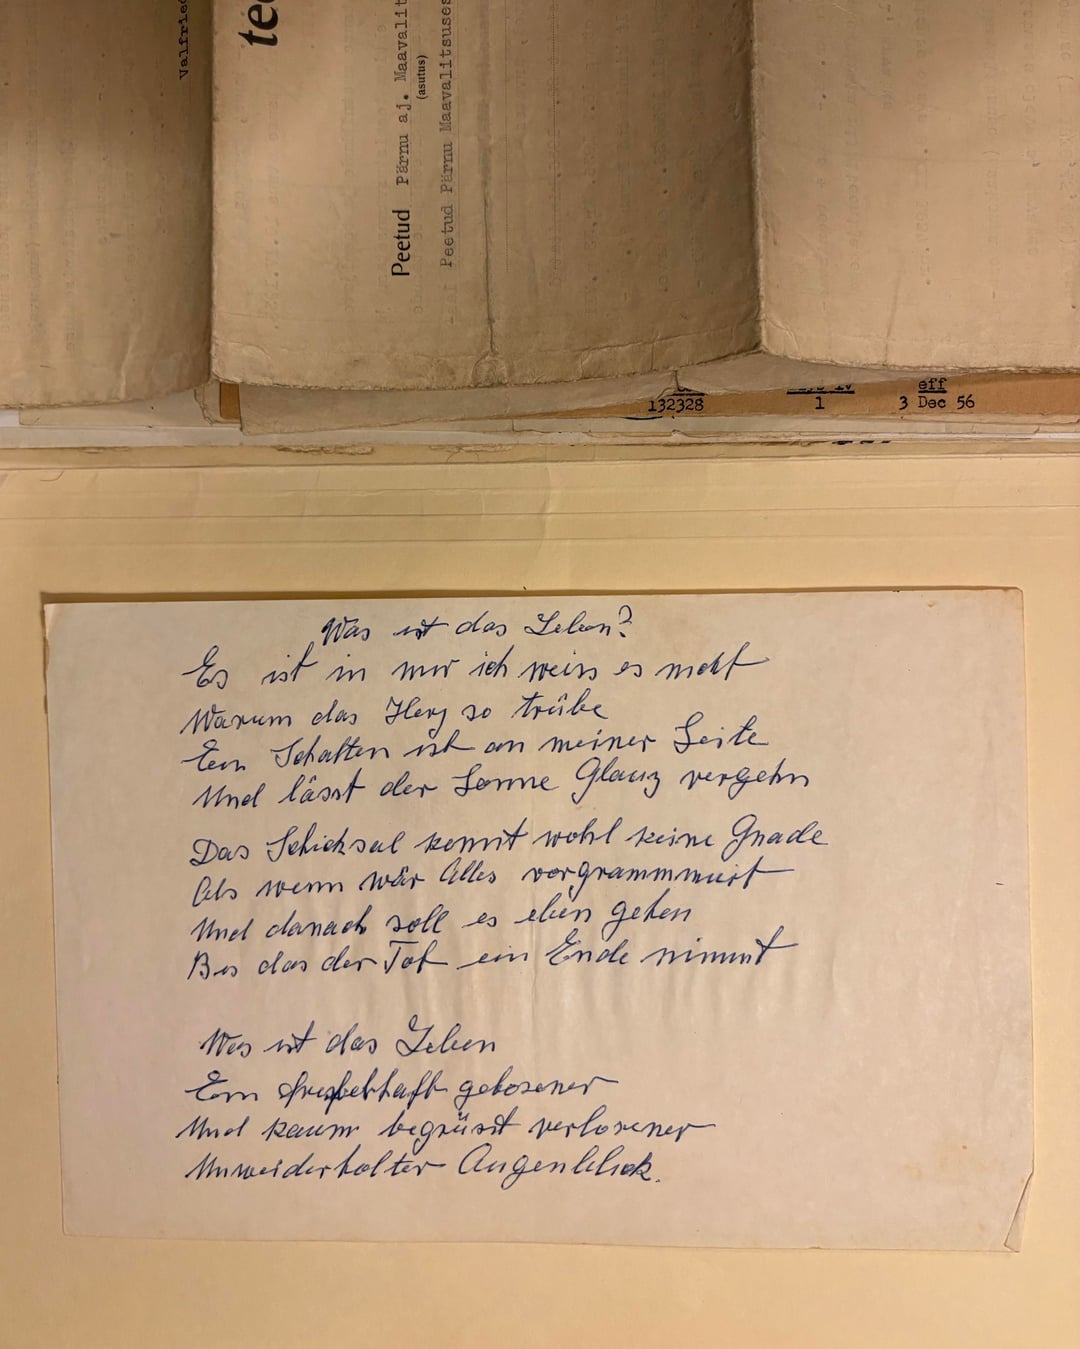 Valfried
tee
Peetud Pärnu aj. Maavalit
(asutus)
Peetud Pärnu Maavalitsuses
132328
1
eff
3 Dec 56
Was ist das Leben?
Es ist in mir ich weiss es nicht
Warum das Herz so trübe
Ein Schatten ist an meiner Seite
Und lässt der Sonne Glanz vergehn
Das Schicksal kennt wohl keine Gnade
Als wenn wär Alles vorgrammmiert
Und danach soll es eben gehen
Bis das der Tot ein Ende nimmt
Was ist das Leben
Ein geborener
Und kaum begrüsst verlorener
Unweiderholter Augenblick.